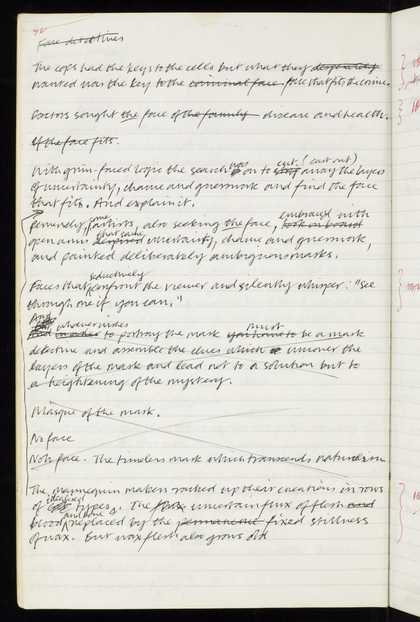 40
Face detectives
The cops had the keys to the cells but what they desperately
wanted was the key to the criminal face face that fits the crime.
Doctors sought the face of the family disease and health.
If the face fits.
With grim-faced logic the search was on to cut (cast out) away the layers
of uncertainty, chance and guesswork and find the face
that fits. And explain it.
Perversely, some artists, also seeking the face, embraced with
open arms that same uncertainty, chance and guesswork,
and painted deliberately ambiguous masks.
Faces that seductively confront the viewer and silently whisper: "See
through me if you can."
And whoever wishes to portray the mask must be a mask
detective and assemble the clues which uncover the
layers of the mask and lead not to a solution but to
a heightening of the mystery.
Masque of the mask.
No face
Noh face. The timeless mask which transcends nature
The mannequin makers ranked up their creations in rows
of idealised types. The uncertain flux of flesh and
blood and bone replaced by the permanent fixed stillness
of wax. But wax flesh also grows old